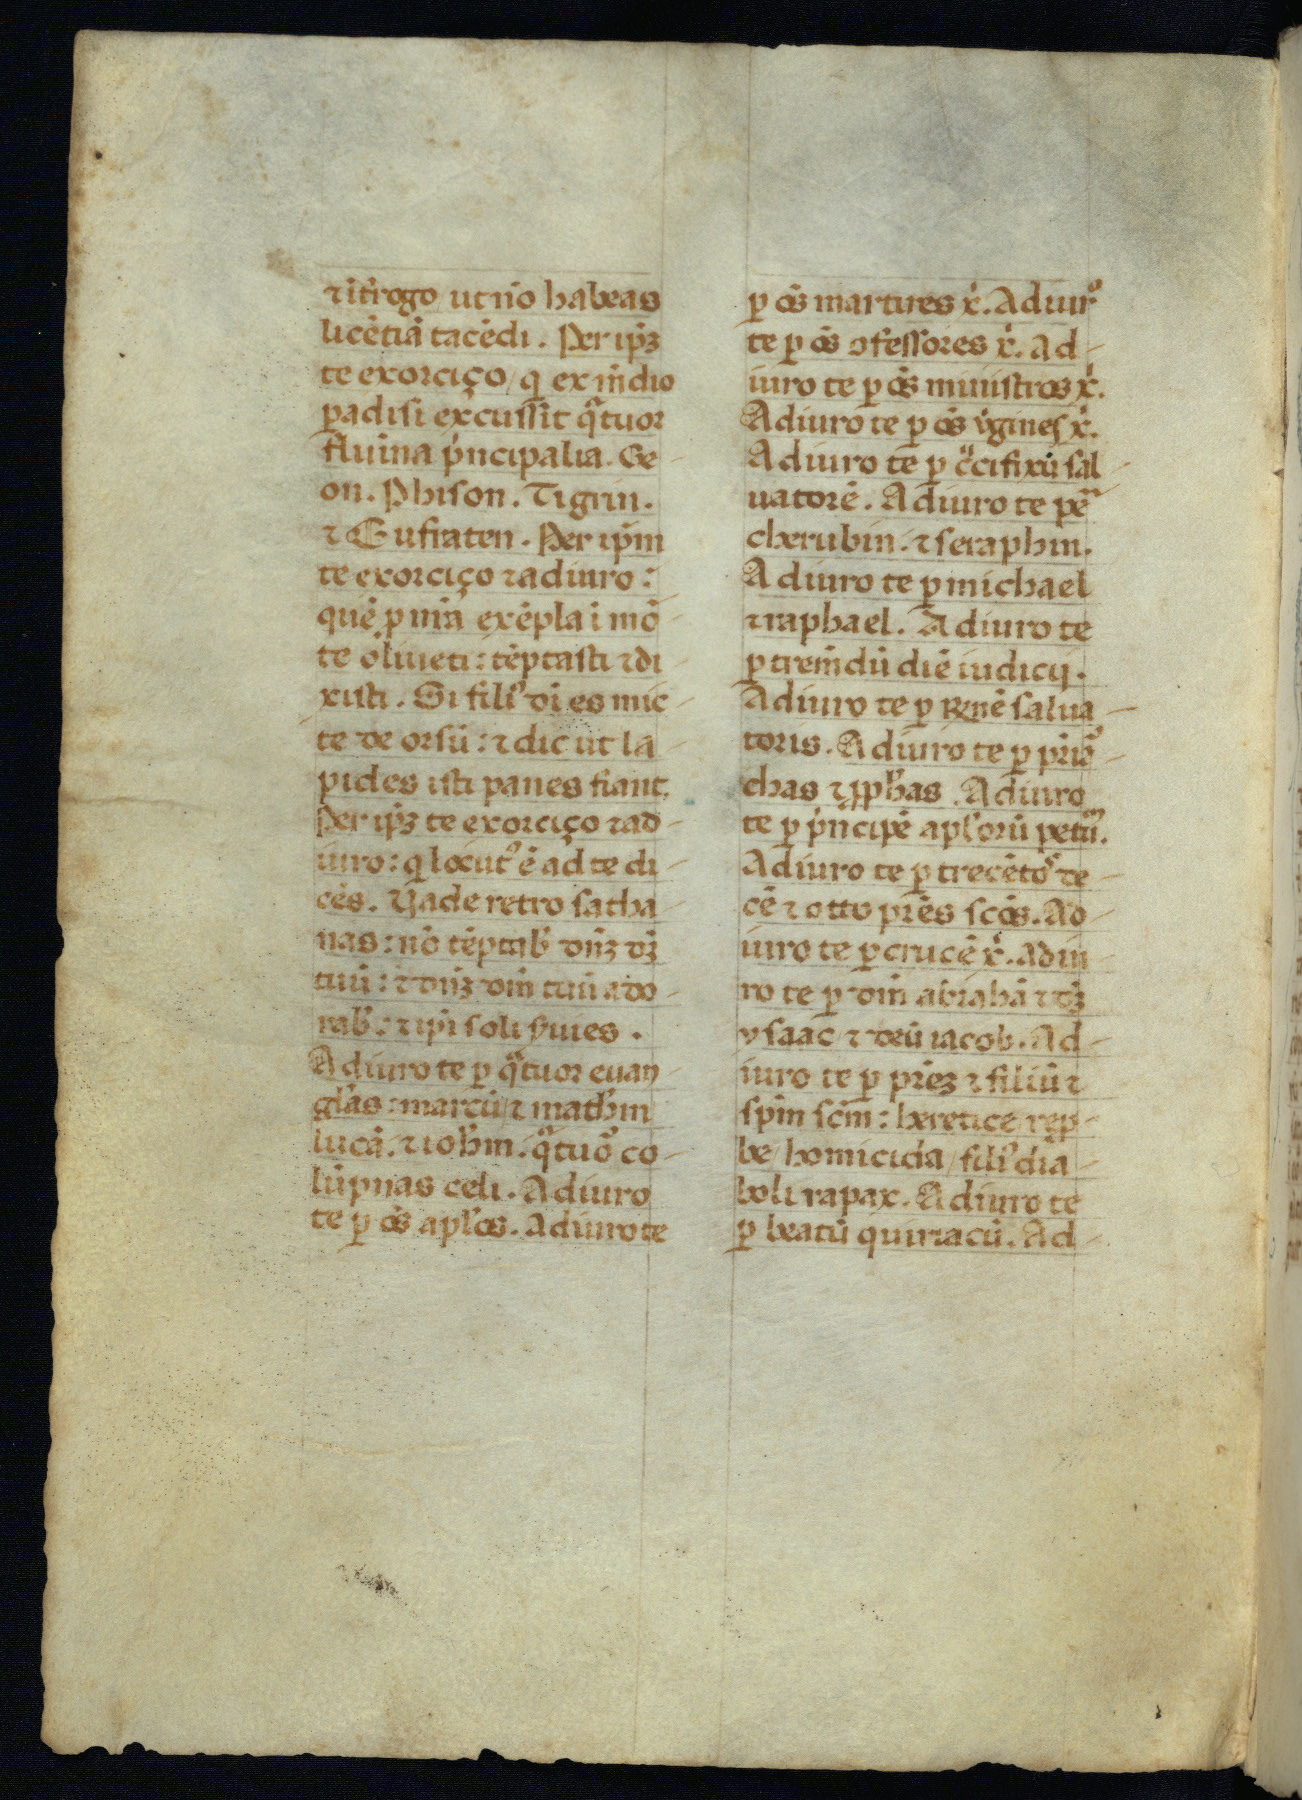 ⁊ it̃rogo ut nõ habeas
licẽtiã tacẽdi. Per ip̃ꝫ
te exorciço / q̃ ex m̃dio
ꝑadisi excussit qͣtuor
flum̃a pⁱncipalia. Ge-
on. Phison. Tigrin.
⁊ Eufraten. Per ip̃m
te exorciço ⁊ adiuro:
quẽ ꝑ mĩa exẽpla ĩ mõ-
te oliueti: tẽptasti ⁊ di-
xisti. Si filiꝰ di es mic-
te deorsũ: ⁊ dic ut la-
pides isti panes fiant.
Per ip̃ꝫ te exorciço ⁊ ad-
iuro: q̃ locutꝰ ẽ ad te di-
cẽs. Vade retro satha-
nas: nõ tẽptab̃ dñꝫ dꝫ̃
tuũ: ⁊ dñꝫ dm̃ tuũ ado-
rab̃: ⁊ ip̃i soli ẜuies.
Adiuro te ꝑ qͣtuor euan-
gl̃as: marcũ ⁊ math̃m
lucã. ⁊ ioh̃m. qͣtuoꝰ co-
lũpnas celi. Adiuro
te ꝑ oẽs apl̃os. Adiuro te
ꝑ oẽs martires x̃. Adiurͦ
te ꝑ oẽs ꝯfessores x̃. Ad-
iuro te ꝑ oẽs ministros x̃.
Adiuro te ꝑ oẽs vⁱgines x̃.
Adiuro te ꝑ cͧcifixũ sal-
uatorẽ. Adiuro te ꝑ
cherubin. ⁊ seraphin.
Adiuro te ꝑ michael
⁊ raphael. Adiuro te
ꝑ trem̃dũ diẽ iudicij.
Adiuro te ꝑ noẽ salua-
toris. Adiuro te ꝑ pr̃iar-
chas ⁊ ꝓph̃as. Adiuro
te ꝑ pⁱncipẽ apl̃orũ petrũ.
Adiuro te ꝑ trecẽtoˢ de-
cẽ ⁊ otto pr̃es sc̃os. Ad-
iuro te ꝑ crucẽ x̃. Adiu-
ro te ꝑ dm̃ abrahã ⁊ dꝫ̃
ysaac ⁊ deũ iacob. Ad-
iuro te ꝑ pr̃eꝫ ⁊ filiũ ⁊
sp̃m sc̃m: heretice / rep-
be / homicida / filiꝰ dia-
boli rapax. Adiuro te
ꝑ beatũ quiriacũ. Ad-